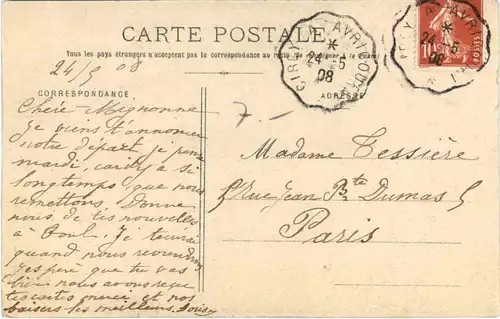 CARTE POSTALE
Tous les pays étrangers n'acceptent pas la correspondance au recto
24/5 08
CORRESPONDANCE
ADRESSE
CIREY A AVRICOURT
24 - 5
08
24 - 5
08
10
7.-
Chère Mignonne
Je viens t'annoncer
notre départ, je pense
mardi, car il y a si
longtemps que nous
remettons. Donne
nous de tes nouvelles
à Toul. Je t'écrirai
quand nous reviendrons
j'espère que tu vas
bien nous avons reçu
tes cartes merci et nos
baisers les meilleurs.
Madame Tessière
Rue Jean Bte Dumas 5
Paris